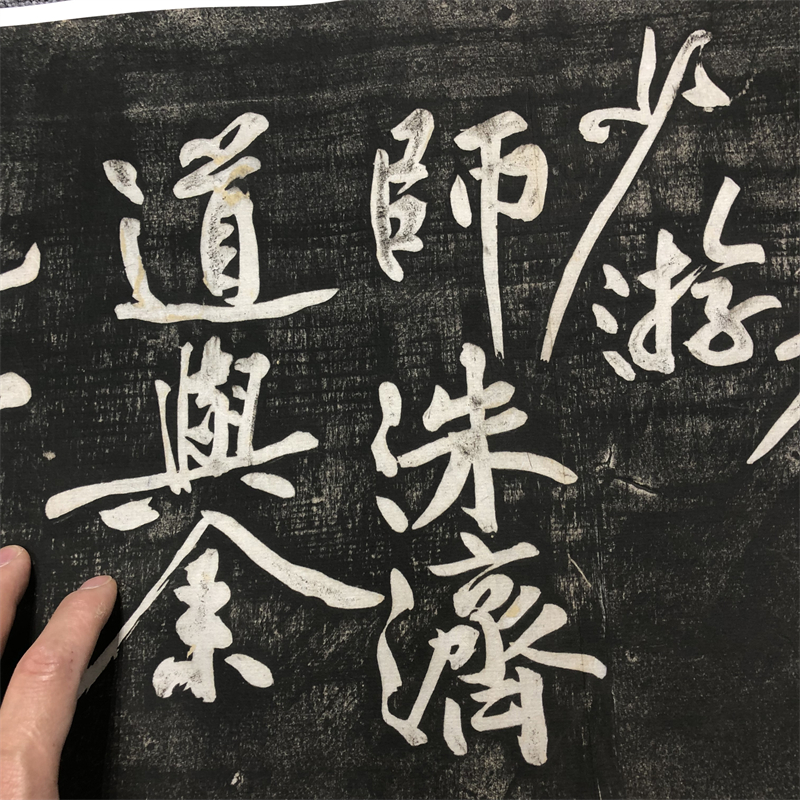 少游
師洙濟
道與余